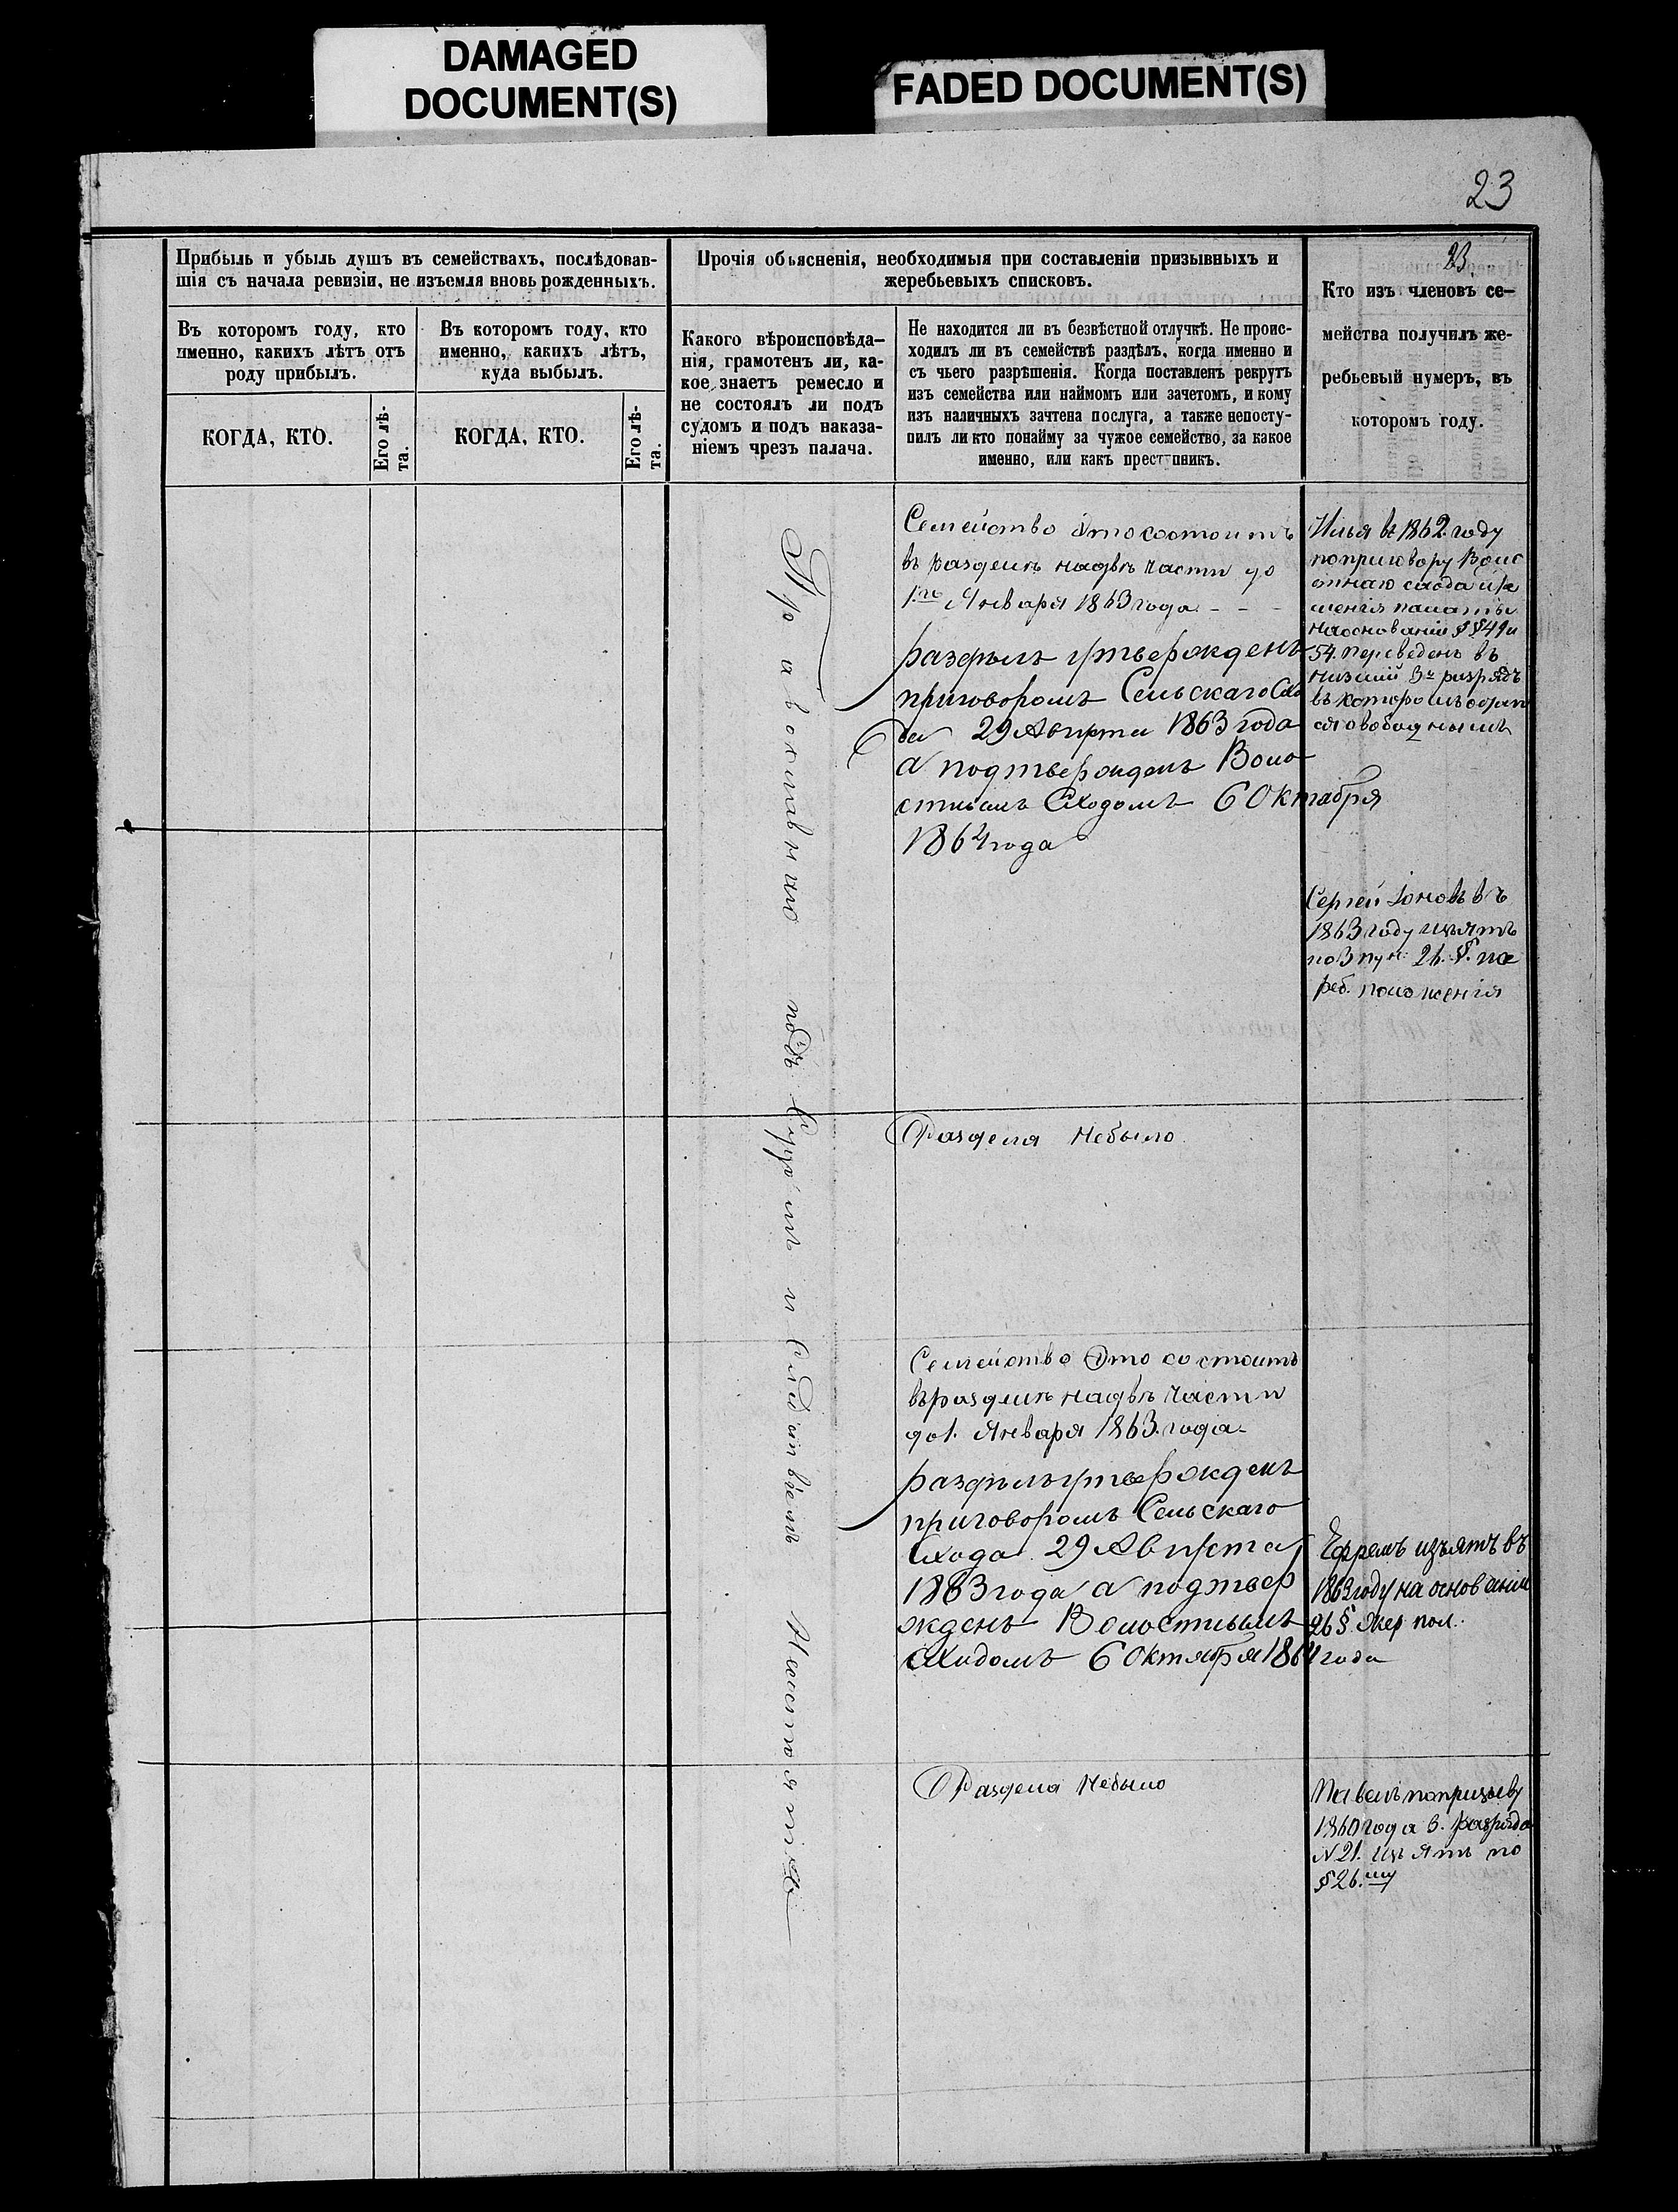 DAMAGED
DOCUMENT(S)
FADED DOCUMENT(S)
23
Прибыль и убыль душъ въ семействахъ, послѣдовав-
шія съ начала ревизіи, не изъемля вновь рожденныхъ.
Въ которомъ году, кто
именно, какихъ лѣтъ отъ
роду прибылъ.
Въ которомъ году, кто
именно, какихъ лѣтъ,
куда выбылъ.
КОГДА, КТО.
Его лѣ-
та.
КОГДА, КТО.
Его лѣ-
та.
Прочія объясненія, необходимыя при составленіи призывныхъ и
жеребьевыхъ списковъ.
Какого вѣроисповѣда-
нія, грамотенъ ли, ка-
кое знаетъ ремесло и
не состоялъ ли подъ
судомъ и подъ наказа-
ніемъ чрезъ палача.
Не находится ли въ безвѣстной отлучкѣ. Не проис-
ходилъ ли въ семействѣ раздѣлъ, когда именно и
съ чьего разрѣшенія. Когда поставленъ рекрутъ
изъ семейства или наймомъ или зачетомъ, и кому
изъ наличныхъ зачтена послуга, а также непосту-
пилъ ли кто понайму за чужое семейство, за какое
именно, или какъ преступникъ.
23.
Кто изъ членовъ се-
мейства получилъ же-
ребьевый нумеръ, въ
которомъ году.
Православнаго подъ Судомъ и Следствіемъ Несостоятъ
Семейство Это состоитъ
въ разделѣ надвѣ части до
1го Января 1863 года - - -
раздѣлъ утвержденъ
приговоромъ Сельскаго Схо
да 29 Августа 1863 года
а подтвержденъ Воло
стнымъ Сходомъ 6 Октября
1864 года
Илья въ 1862 году
поприговору Волос
тнаго схода и ре
шенія палаты
наоснованіи §§ 49 и
54. переведенъ въ
низшій 3й разрядъ
въ которомъ
Сергей Іоновъ въ
1863 году изъятъ
по 3 пун. 26. §. же
реб. положенія
Раздела Небыло
Семейство Это состоитъ
въразделѣ надвѣ части
до 1. Января 1863. года-
раздѣлъ утвержденъ
приговоромъ Сельскаго
Схода 29 Августа
1863 года а подтвер
жденъ Волостнымъ
Сходомъ 6 Октября 1864 года
Ефремъ изъятъ въ
1863 году на основаніи
26 §. Жер. пол.
Раздела Небыло
Павелъ попризыву
1860 года 3. разряда
N 21. изъятъ по
§ 26.му